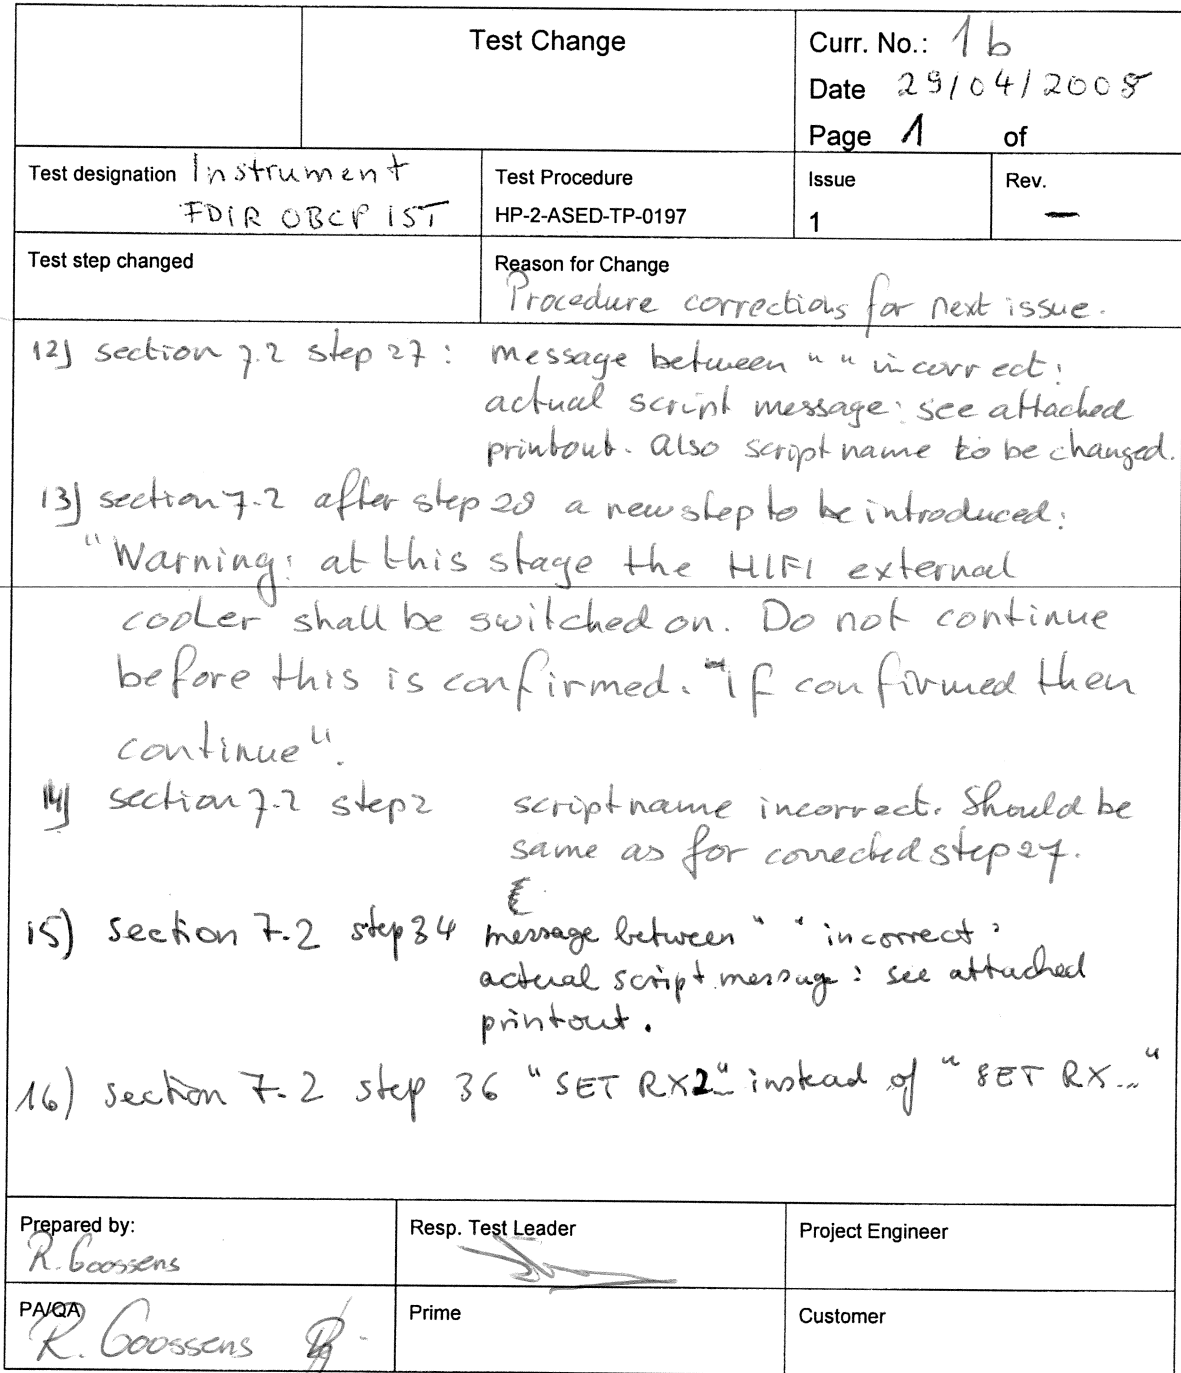 Test Change
Curr. No.: 1b
Date 29/04/2008
Page 1 of
Test designation Instrument
FDIR OBCP IST
Test Procedure
HP-2-ASED-TP-0197
Issue
1
Rev.
—
Test step changed
Reason for Change
Procedure corrections for next issue.
12) section 7.2 step 27: message between " " incorrect:
actual script message: see attached
printout. Also script name to be changed.
13) section 7.2 after step 28 a new step to be introduced:
"Warning: at this stage the HIFI external
cooler shall be switched on. Do not continue
before this is confirmed. "If confirmed then
continue".
14) section 7.2 step 2 script name incorrect. Should be
same as for corrected step 27.
15) section 7.2 step 34 message between " " incorrect:
actual script message: see attached
printout.
16) section 7.2 step 36 "SET RX2.." instead of "SET RX..."
Prepared by:
R. Goossens
Resp. Test Leader
Project Engineer
PA/QA
R. Goossens
Prime
Customer